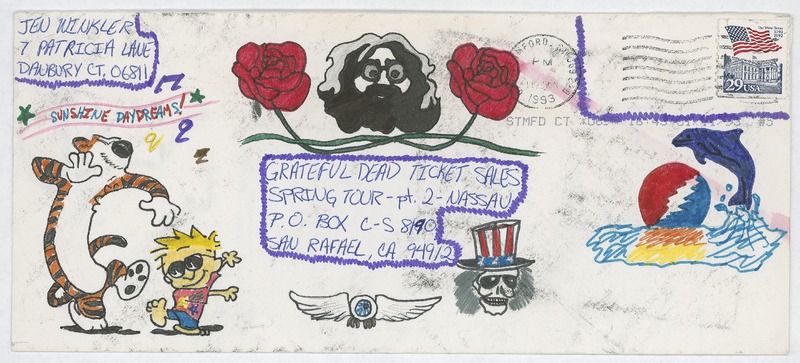 JEN WINKLER
7 PATRICIA LANE
DANBURY CT. 06811
SUNSHINE DAYDREAMS!
PM
1993
STMFD CT
#5
29 USA
GRATEFUL DEAD TICKET SALES
SPRING TOUR - pt. 2 - NASSAU
P.O. BOX C-S 8190
SAN RAFAEL, CA 94912